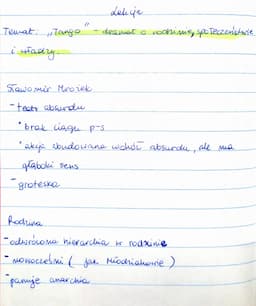 Lekcja
Temat: "Tango" - dramat o rodzinie, społeczeństwie
i władzy.
Sławomir Mrożek
- teatr absurdu
• brak ciągu p-s
• akcja zbudowana wokół absurdu, ale ma
głęboki sens
- groteska
Rodzina
- odwrócona hierarchia w rodzinie
- nowocześni (jak Młodziakowie)
- panuje anarchia